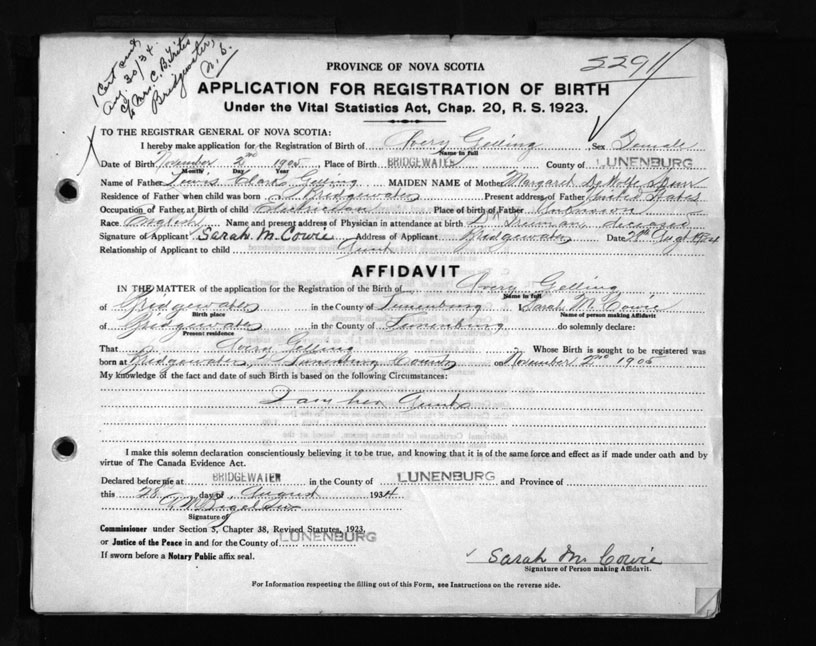 1 Cert sent
Aug 30/34
C/o Mrs. C. B.
Bridgewater,
N. S.
PROVINCE OF NOVA SCOTIA
APPLICATION FOR REGISTRATION OF BIRTH
Under the Vital Statistics Act, Chap. 20, R. S. 1923.
TO THE REGISTRAR GENERAL OF NOVA SCOTIA:
I hereby make application for the Registration of Birth of Avery Gelling Sex Female
Name in full
Date of Birth November 2nd 1905 Place of Birth BRIDGEWATER County of LUNENBURG
Month Day Year
Name of Father Gelling MAIDEN NAME of Mother Margaret DeWolfe
Residence of Father when child was born Bridgewater Present address of Father United States
Occupation of Father at Birth of child Electrician Place of birth of Father Unknown
Race English Name and present address of Physician in attendance at birth Dr. deceased
Signature of Applicant Sarah M. Cowie Address of Applicant Bridgewater Date 1934
Relationship of Applicant to child Aunt
AFFIDAVIT
IN THE MATTER of the application for the Registration of the Birth of Avery Gelling
Name in full
of Bridgewater in the County of Lunenburg I Sarah M. Cowie
Birth place Name of person making Affidavit
of Bridgewater in the County of Lunenburg do solemnly declare:
Present residence
That Avery Gelling Whose Birth is sought to be registered was
born at Bridgewater, Lunenburg County on November 2nd 1905
My knowledge of the fact and date of such Birth is based on the following Circumstances:
I am her Aunt
I make this solemn declaration conscientiously believing it to be true, and knowing that it is of the same force and effect as if made under oath and by
virtue of The Canada Evidence Act.
Declared before me at BRIDGEWATER in the County of LUNENBURG and Province of
this 28 day of August 1934
Signature of
Commissioner under Section 3, Chapter 38, Revised Statutes, 1923,
or Justice of the Peace in and for the County of LUNENBURG
If sworn before a Notary Public affix seal.
Sarah M Cowie
Signature of Person making Affidavit.
For Information respecting the filling out of this Form, see Instructions on the reverse side.